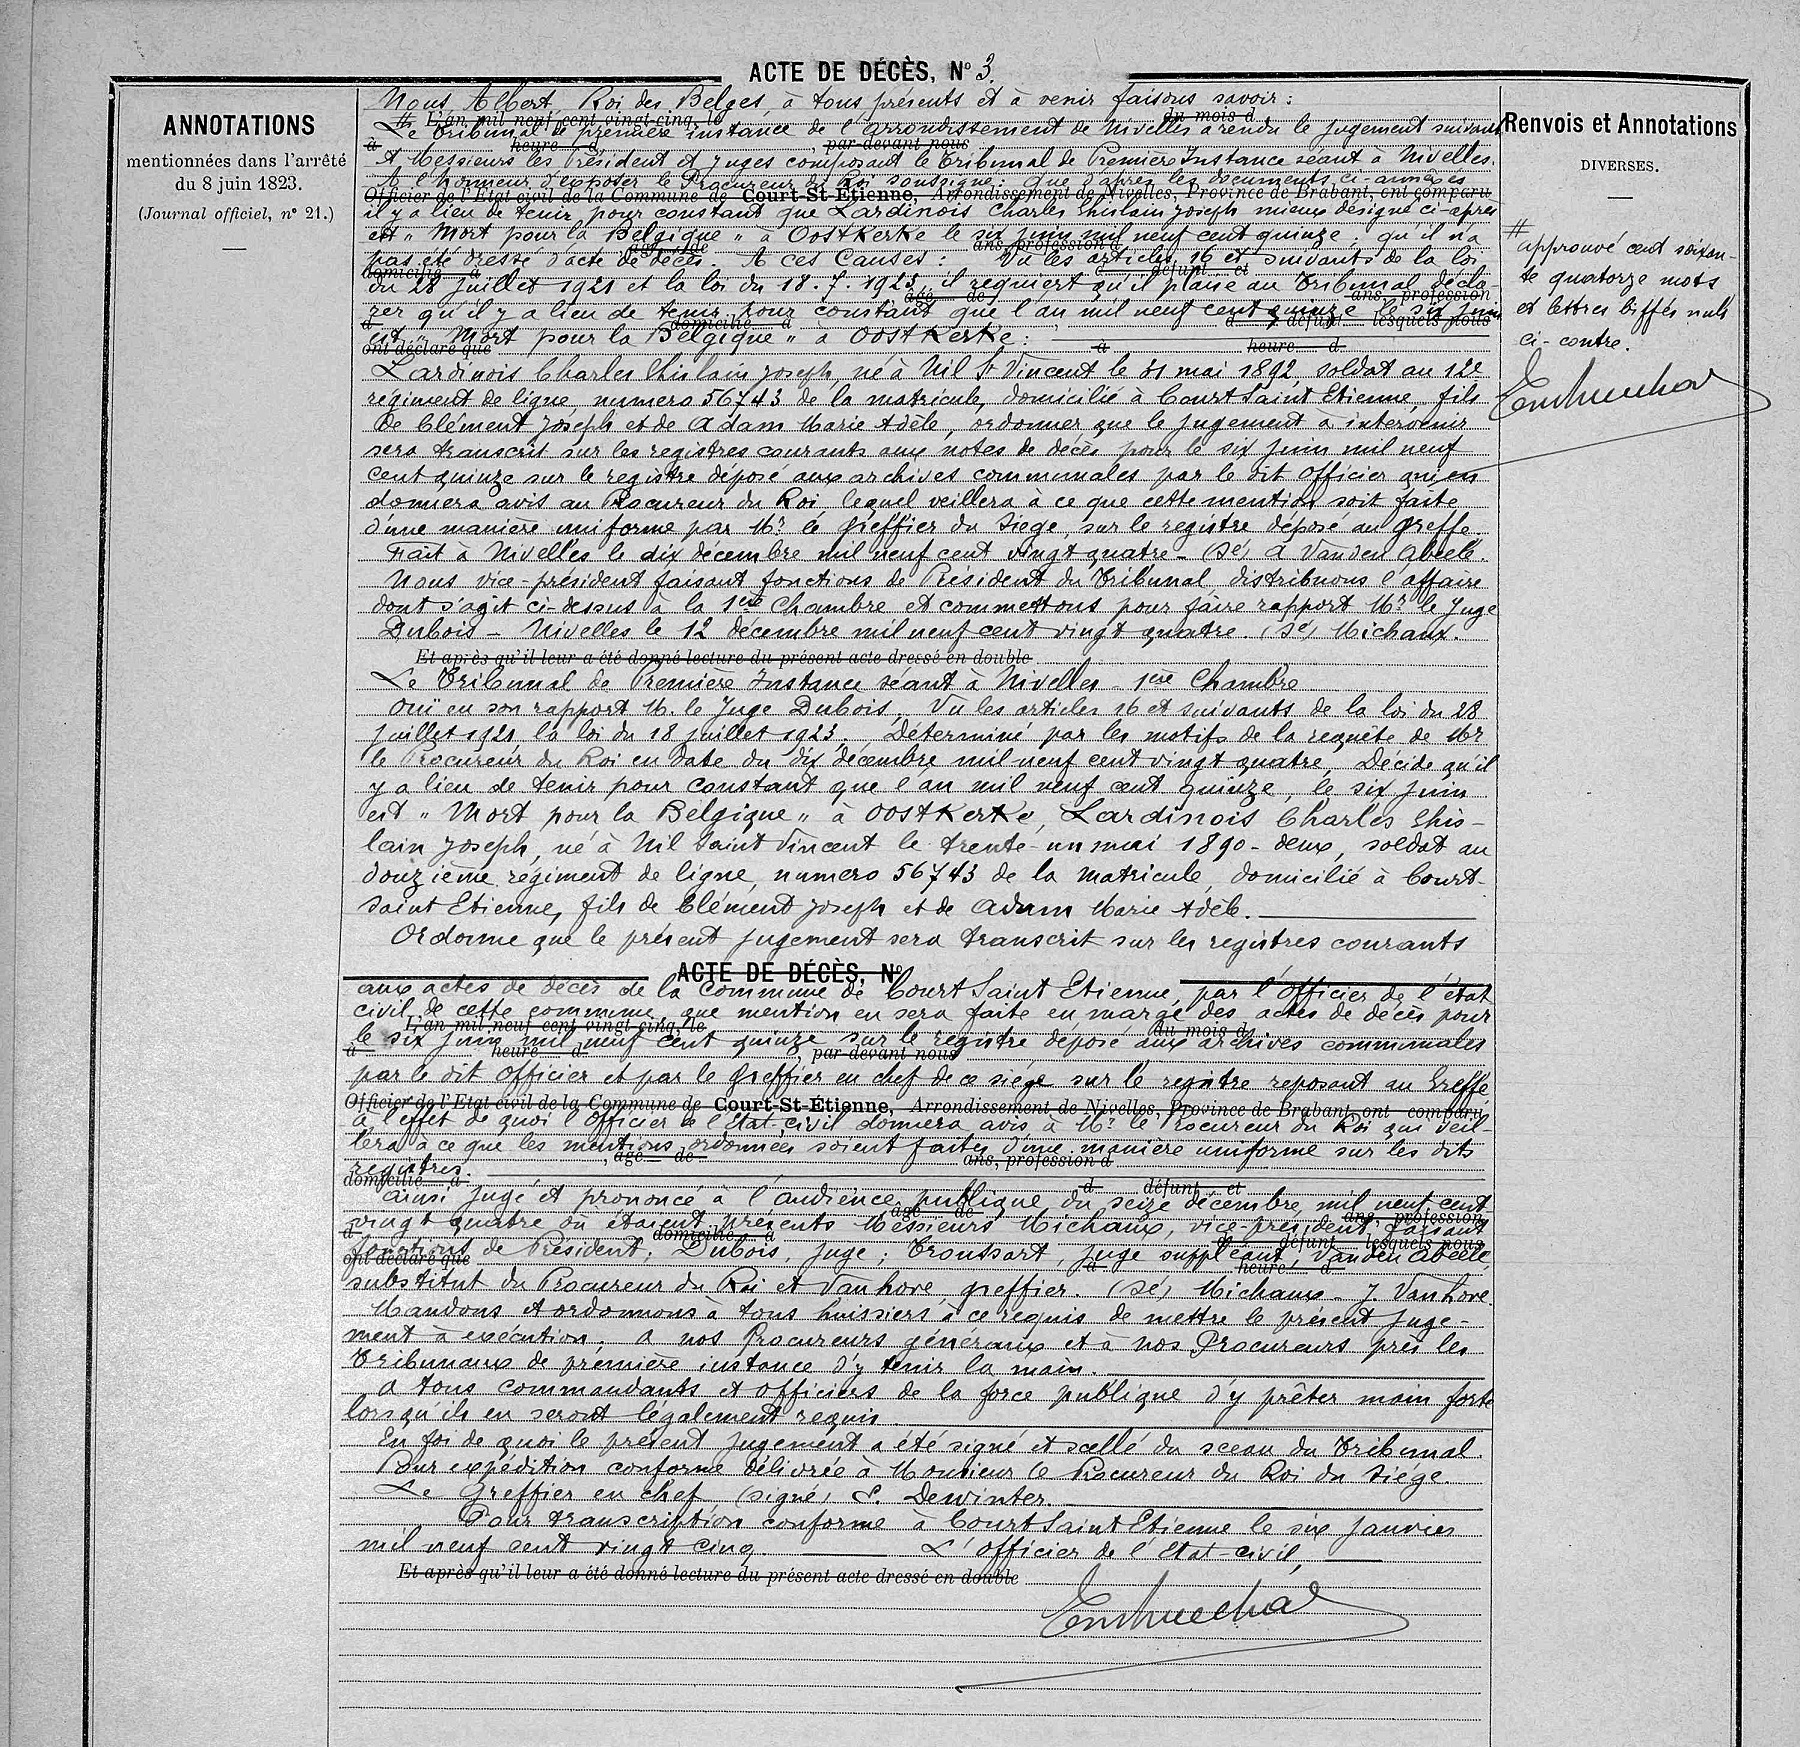 ACTE DE DÉCÈS, N° 3.
ANNOTATIONS
mentionnées dans l'arrêté
du 8 juin 1823.
(Journal officiel, n° 21.)
Nous, Albert, Roi des Belges, à tous présents et à venir faisons savoir :
# L'an mil neuf cent vingt-cinq, le du mois d
Le Tribunal de première instance de l'arrondissement de Nivelles a rendu le jugement suivant
à heure d , par-devant nous
A Messieurs les Président et Juges composant le Tribunal de Première Instance séant à Nivelles.
A l'honneur d'exposer le Procureur du Roi soussigné : que d'après les documents ci-annexés
Officier de l'Etat civil de la Commune de Court-St-Étienne, Arrondissement de Nivelles, Province de Brabant, ont comparu
il y a lieu de tenir pour constant que Lardinois Charles Ghislain Joseph mieux désigné ci-après
est " Mort pour la Belgique " à Oostkerke le six juin mil neuf cent quinze ; qu'il n'a
âgé de ans, profession d
pas été dressé d'acte de décès. A ces Causes : Vu les articles 16 et suivants de la loi
domicilié à d défunt et
du 28 juillet 1921 et la loi du 18.7.1923, il requiert qu'il plaise au Tribunal décla-
âgé de ans, profession
rer qu'il y a lieu de tenir pour constant que l'an mil neuf cent quinze le six juin
d domicilié à d défunt lesquels nous
est " Mort pour la Belgique " à Oostkerke :
ont déclaré que à heure d
Lardinois Charles Ghislain Joseph, né à Nil St Vincent le 31 mai 1892, soldat au 12e
régiment de ligne, numero 56743 de la matricule, domicilié à Court Saint Etienne, fils
de Clément Joseph et de Adam Marie Adèle, ordonner que le jugement à intervenir
sera transcrit sur les registres courants aux notes de décès pour le six juin mil neuf
cent quinze sur le registre déposé aux archives communales par le dit Officier qui en
donnera avis au Procureur du Roi lequel veillera à ce que cette mention soit faite
d'une manière uniforme par Mr le Greffier du Siège, sur le registre déposé au Greffe.
Fait à Nivelles le dix décembre mil neuf cent vingt quatre - (sé) A Vanden Abeele.
Nous vice-président faisant fonctions de Président du Tribunal distribuons l'affaire
dont s'agit ci-dessus à la 1ère Chambre et commettons pour faire rapport Mr le Juge
Dubois - Nivelles le 12 décembre mil neuf cent vingt quatre. (sé) Michaux.
Et après qu'il leur a été donné lecture du présent acte dressé en double
Le Tribunal de Première Instance séant à Nivelles - 1ère Chambre
Ouï en son rapport M. le Juge Dubois, Vu les articles 16 et suivants de la loi du 28
juillet 1921, la loi du 18 juillet 1923. Déterminé par les motifs de la requête de Mr
le Procureur du Roi en date du dix décembre mil neuf cent vingt quatre, Décide qu'il
y a lieu de tenir pour constant que l'an mil neuf cent quinze, le six juin
est " Mort pour la Belgique " à Oostkerke, Lardinois Charles Ghis-
lain Joseph, né à Nil Saint Vincent le trente-un mai 1890-deux, soldat au
douzième régiment de ligne, numero 56743 de la matricule, domicilié à Court-
Saint Etienne, fils de Clément Joseph et de Adam Marie Adèle.
Ordonne que le présent jugement sera transcrit sur les registres courants
ACTE DE DÉCÈS, N°
aux actes de décès de la Commune de Court Saint Etienne, par l'Officier de l'état
civil de cette commune, que mention en sera faite en marge des actes de décès pour
L'an mil neuf cent vingt-cinq, le du mois d
le six juin mil neuf cent quinze sur le registre déposé aux archives communales
à heure d , par-devant nous
par le dit Officier et par le Greffier en chef de ce siège sur le registre reposant au Greffe
Officier de l'Etat civil de la Commune de Court-St-Étienne, Arrondissement de Nivelles, Province de Brabant, ont comparu
à l'effet de quoi l'Officier de l'Etat-civil donnera avis à Mr le Procureur du Roi qui veil-
lera à ce que les mentions ordonnées soient faites d'une manière uniforme sur les dits
, âgé de ans, profession d
registres.
domicilié à d défunt et
Ainsi jugé et prononcé à l'audience publique du seize décembre mil neuf cent
âgé de ans, profession
vingt quatre où étaient présents Messieurs Michaux, vice-président faisant
d domicilié à d défunt lesquels nous
fonctions de Président ; Dubois, Juge ; Troussart, Juge suppléant, Vanden Abeele,
ont déclaré que à heure d
substitut du Procureur du Roi et Vanhove, greffier. (sé) Michaux - J. Vanhove.
Mandons et ordonnons à tous huissiers à ce requis de mettre le présent juge-
ment à exécution ; à nos Procureurs généraux et à nos Procureurs près les
Tribunaux de première instance d'y tenir la main.
A tous commandants et officiers de la force publique d'y prêter main forte
lorsqu'ils en seront légalement requis.
En foi de quoi le présent jugement a été signé et scellé du sceau du Tribunal.
Pour expédition conforme délivrée à Monsieur le Procureur du Roi du Siège.
Le Greffier en chef (signé) E. Dewinter.
Pour transcription conforme à Court Saint Etienne le six janvier
mil neuf cent vingt cinq. L'Officier de l'Etat-civil,
Et après qu'il leur a été donné lecture du présent acte dressé en double
Renvois et Annotations
DIVERSES.
#
approuvé cent soixan-
te quatorze mots
et lettres biffés nuls
ci-contre.